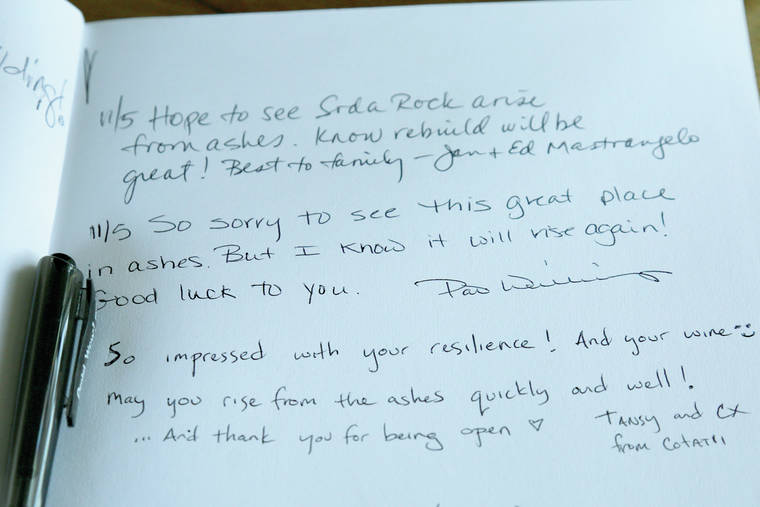 lding!
11/5 Hope to see Soda Rock arise
from ashes. Know rebuild will be
great! Best to family - Jen + Ed Mastrangelo
11/5 So sorry to see this great place
in ashes. But I know it will rise again!
Good luck to you.
So impressed with your resilience! And your wine
may you rise from the ashes quickly and well!
... And thank you for being open ♡
TANSY and CX
from COTATI